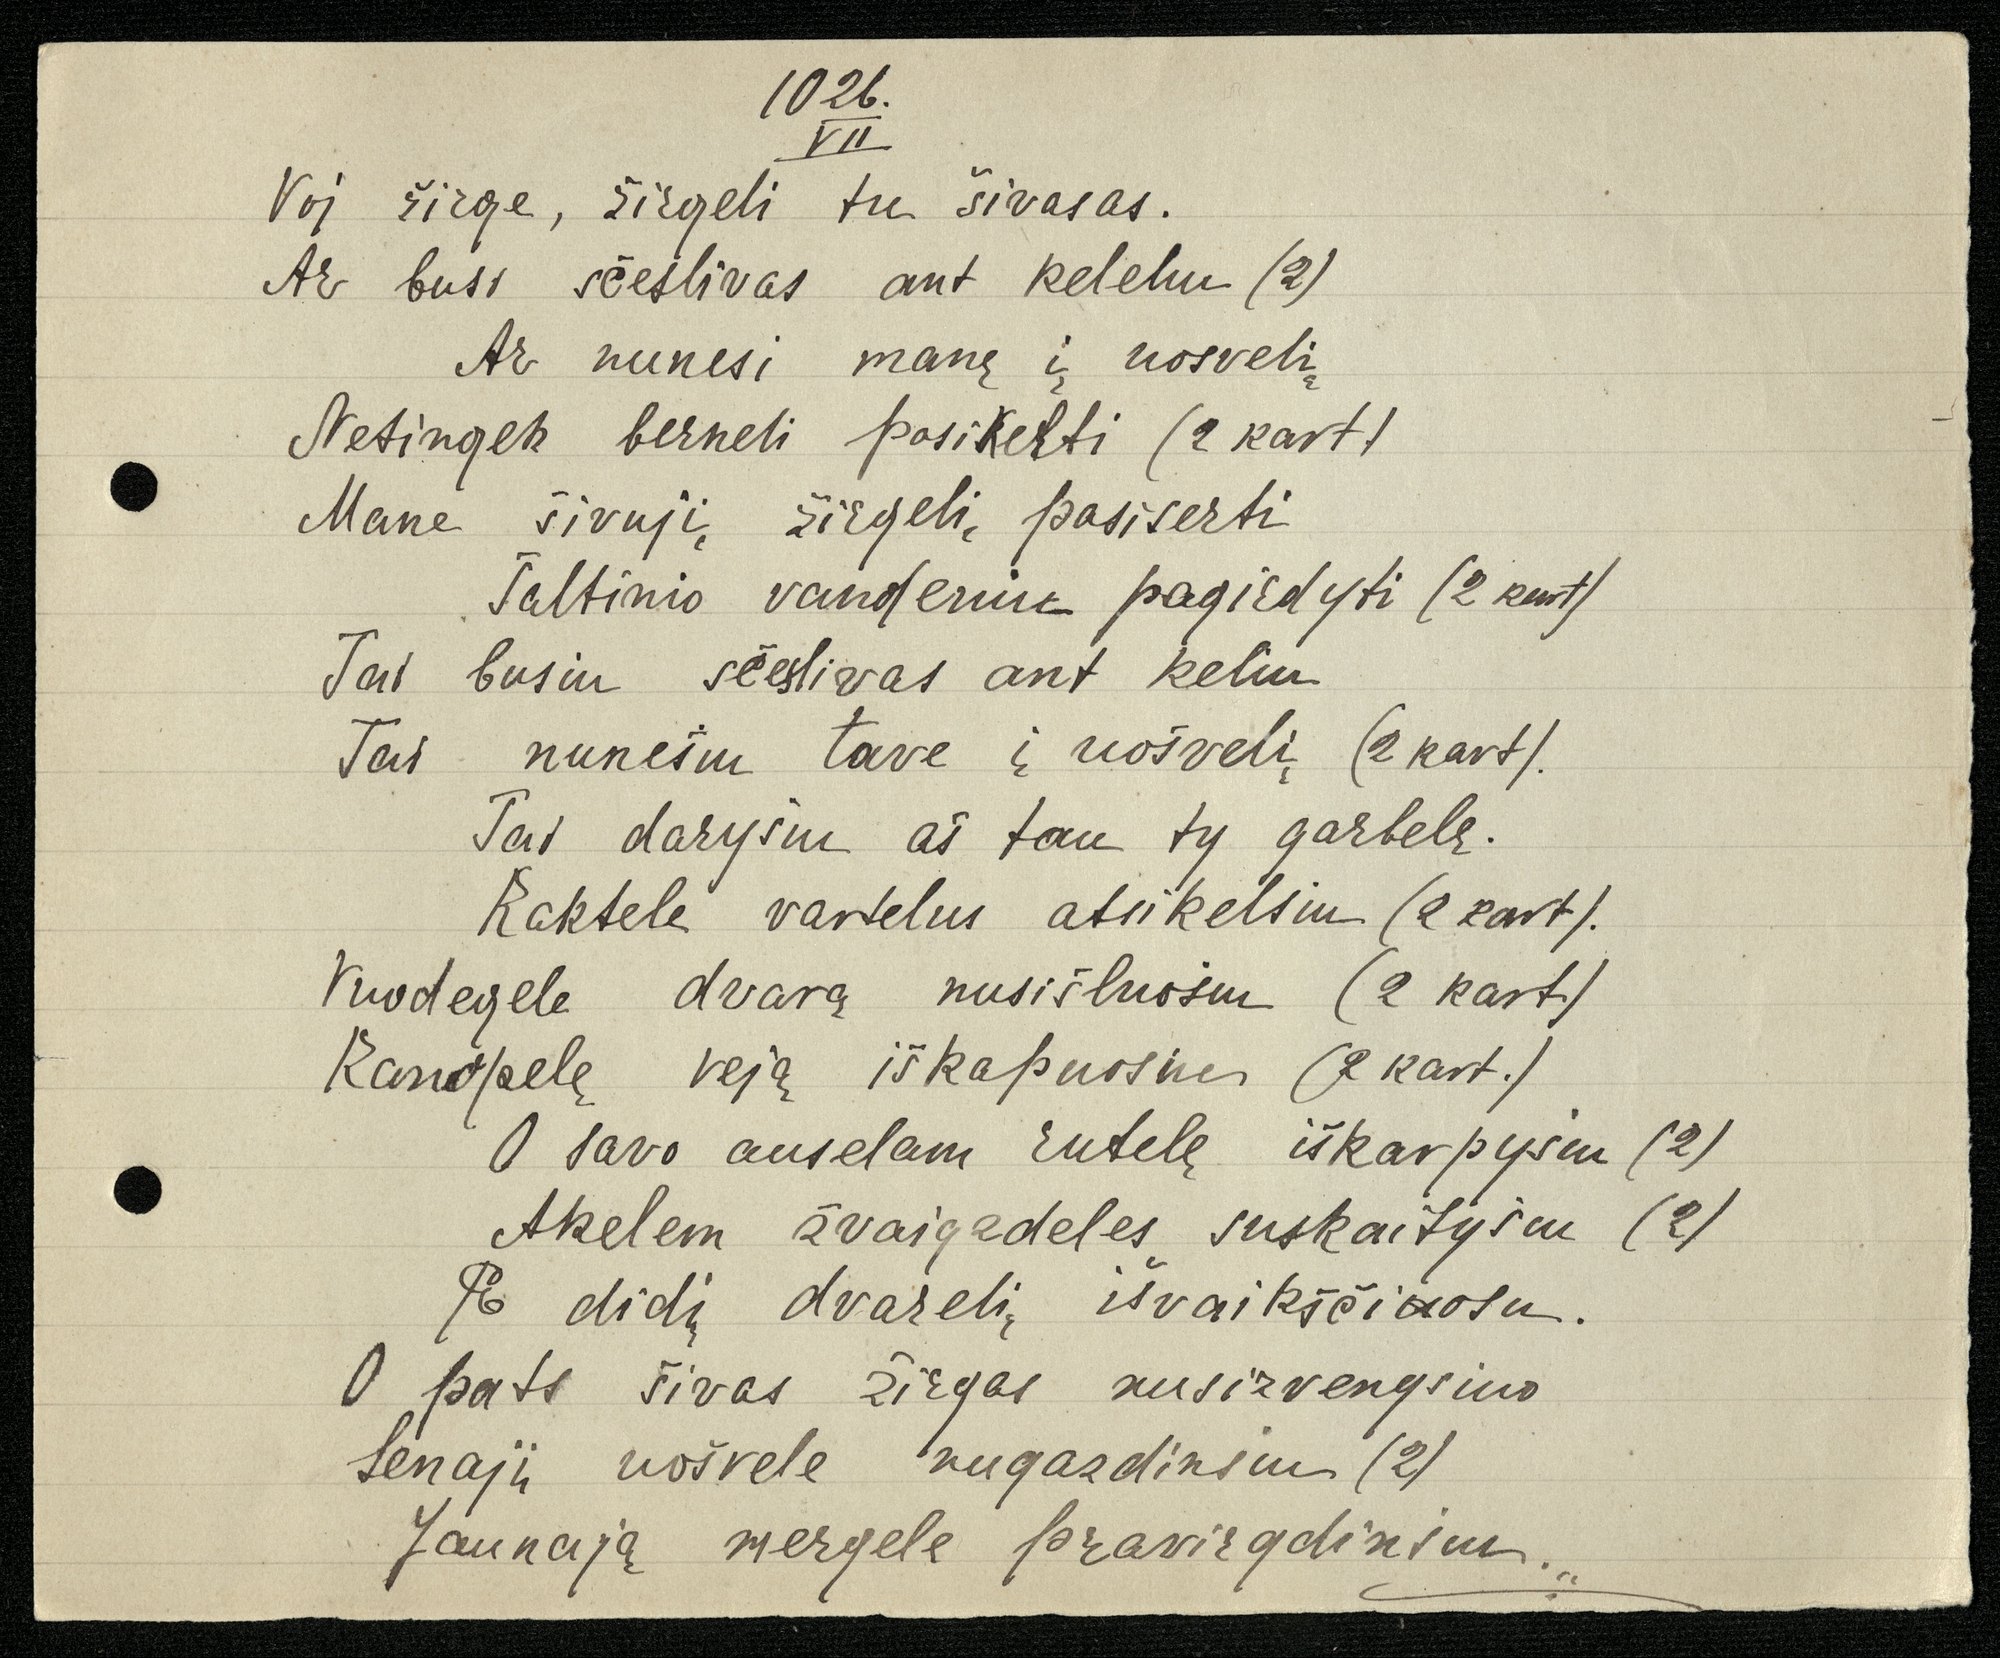 1026.
VII
Voj žirge, žirgeli tu šivasas.
Ar busi sčeslivas ant keleliu (2)
Ar nunesi manę į uosvelį
Netingek berneli posikelti (2 kart)
Mane šivųjį žirgelį pasiserti
Šaltinio vandeniu pagirdyti (2 kart)
Tai busiu sčeslivas ant keliu
Tai nunešiu tave į uošvelį (2 kart).
Tai darysiu aš tau ty garbelę.
Kaktele vartelus atsikelsiu (2 kart).
Vuodegele dvarą nusišluosiu (2 kart)
Kanopelę veją iškapuosiu (2 kart.)
O savo auselam rutelę iškarpysiu (2)
Akelem žvaigzdeles suskaitysiu (2)
Po didį dvarelį išvaikščiuosu.
O pats šivas žirgas nusizvengsiuo
Senąjį uošvele nugazdinsiu (2)
Jaunają mergele pravirgdinsiu.